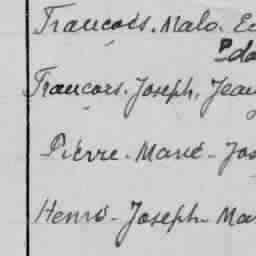 François. Malo. Ed
Pdo
François. Joseph. Jean
Pierre. Marie - Jos
Henri - Joseph - Ma